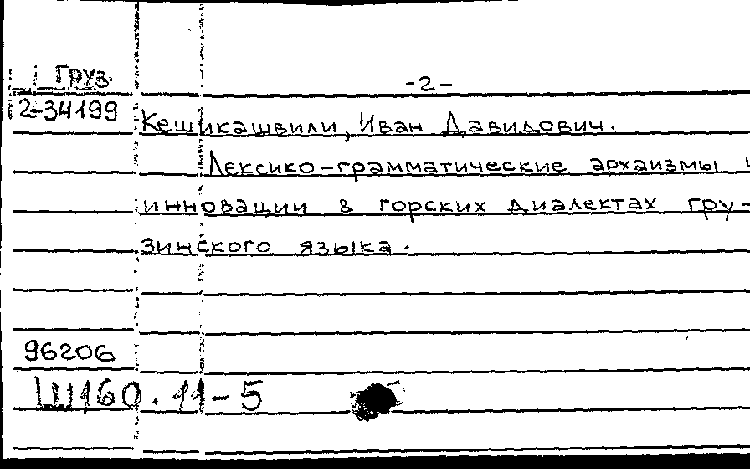 Груз
-2-
2-34199
Кешикашвили, Иван Давидович.
Лексико-грамматические архаизмы и
инновации в горских диалектах гру-
зинского языка.
96206
Ш160.11-5